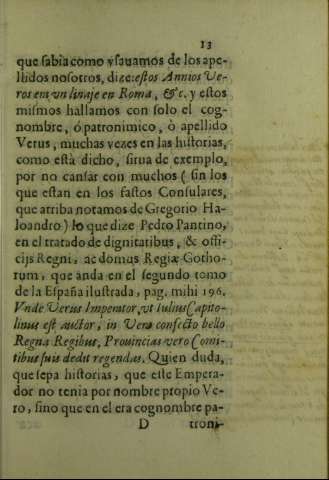 13
que sabia como vsauamos de los ape-
llidos nosotros, dize: estos Annios Ve-
ros em vn linaje en Roma, &c. y estos
mismos hallamos con solo el cog-
nombre, ó patronimico, ò apellido
Verus, muchas vezes en las historias,
como està dicho, sirua de exemplo,
por no cansar con muchos ( sin los
que estan en los fastos Consulares,
que arriba notamos de Gregorio Ha-
loandro) lo que dize Pedro Pantino,
en el tratado de dignitatibus, & offi-
cijs Regni, ac domus Regiæ Gotho-
rum, que anda en el segundo tomo
de la España ilustrada, pag. mihi 196.
Vnde Verus Imperator, vt Iulius Capito-
linus est auctor, in Vero confecto bello
Regna Regibus, Prouincias vero Comi-
tibus suis dedit regendas. Quien duda,
que sepa historias, que este Empera-
dor no tenia por nombre propio Ve-
ro, sino que en el era cognombre pa-
D troni-